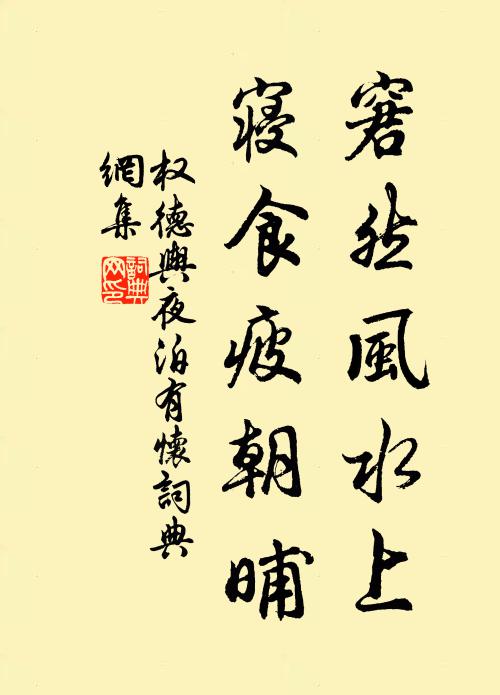 窘然風水上
寢食疲朝晡
权德輿夜泊有懷詞典
網集
詞典网印